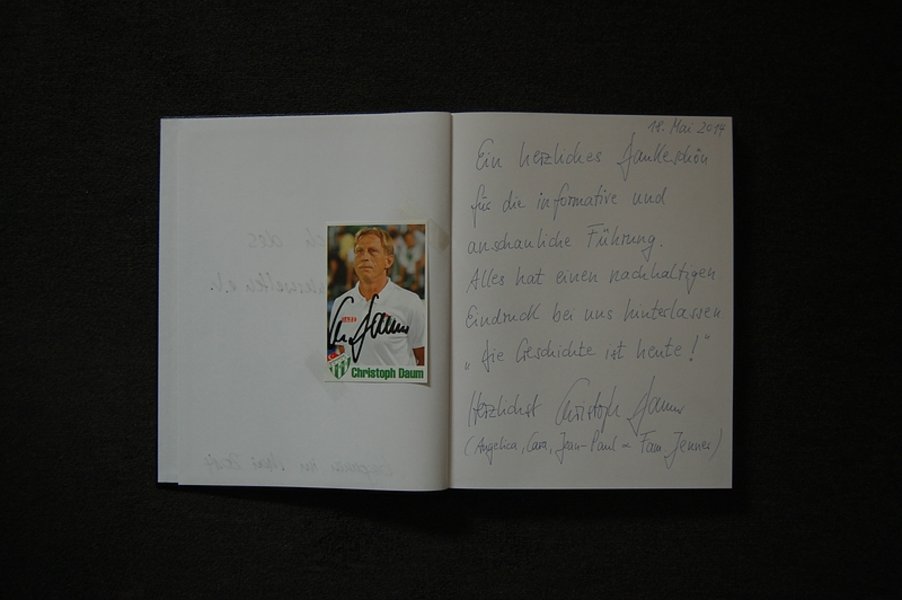 Christoph Daum
18. Mai 2014
Ein herzliches Dankeschön
für die informative und
anschauliche Führung.
Alles hat einen nachhaltigen
Eindruck bei uns hinterlassen
"Die Geschichte ist heute!"
Herzlichst Christoph Daum
(Angelica, Cara, Jean-Paul & Fam. Jenner)